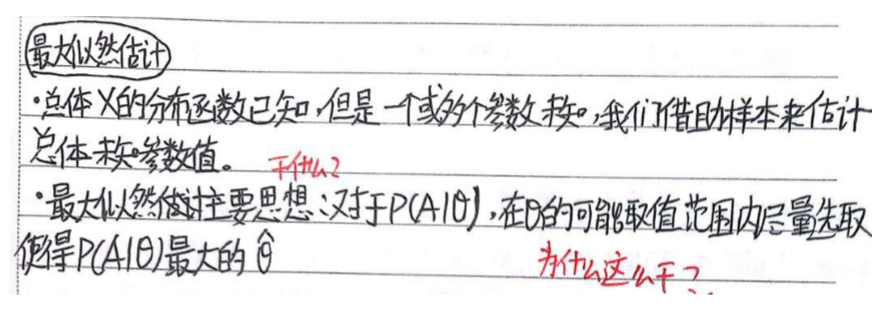 最大似然估计
·总体X的分布函数已知,但是一个或多个参数未知,我们借助样本来估计
总体未知参数值。 干什么?
·最大似然估计主要思想:对于P(A|θ),在θ的可能取值范围内尽量选取
使得P(A|θ)最大的 θ̂
为什么这么干?